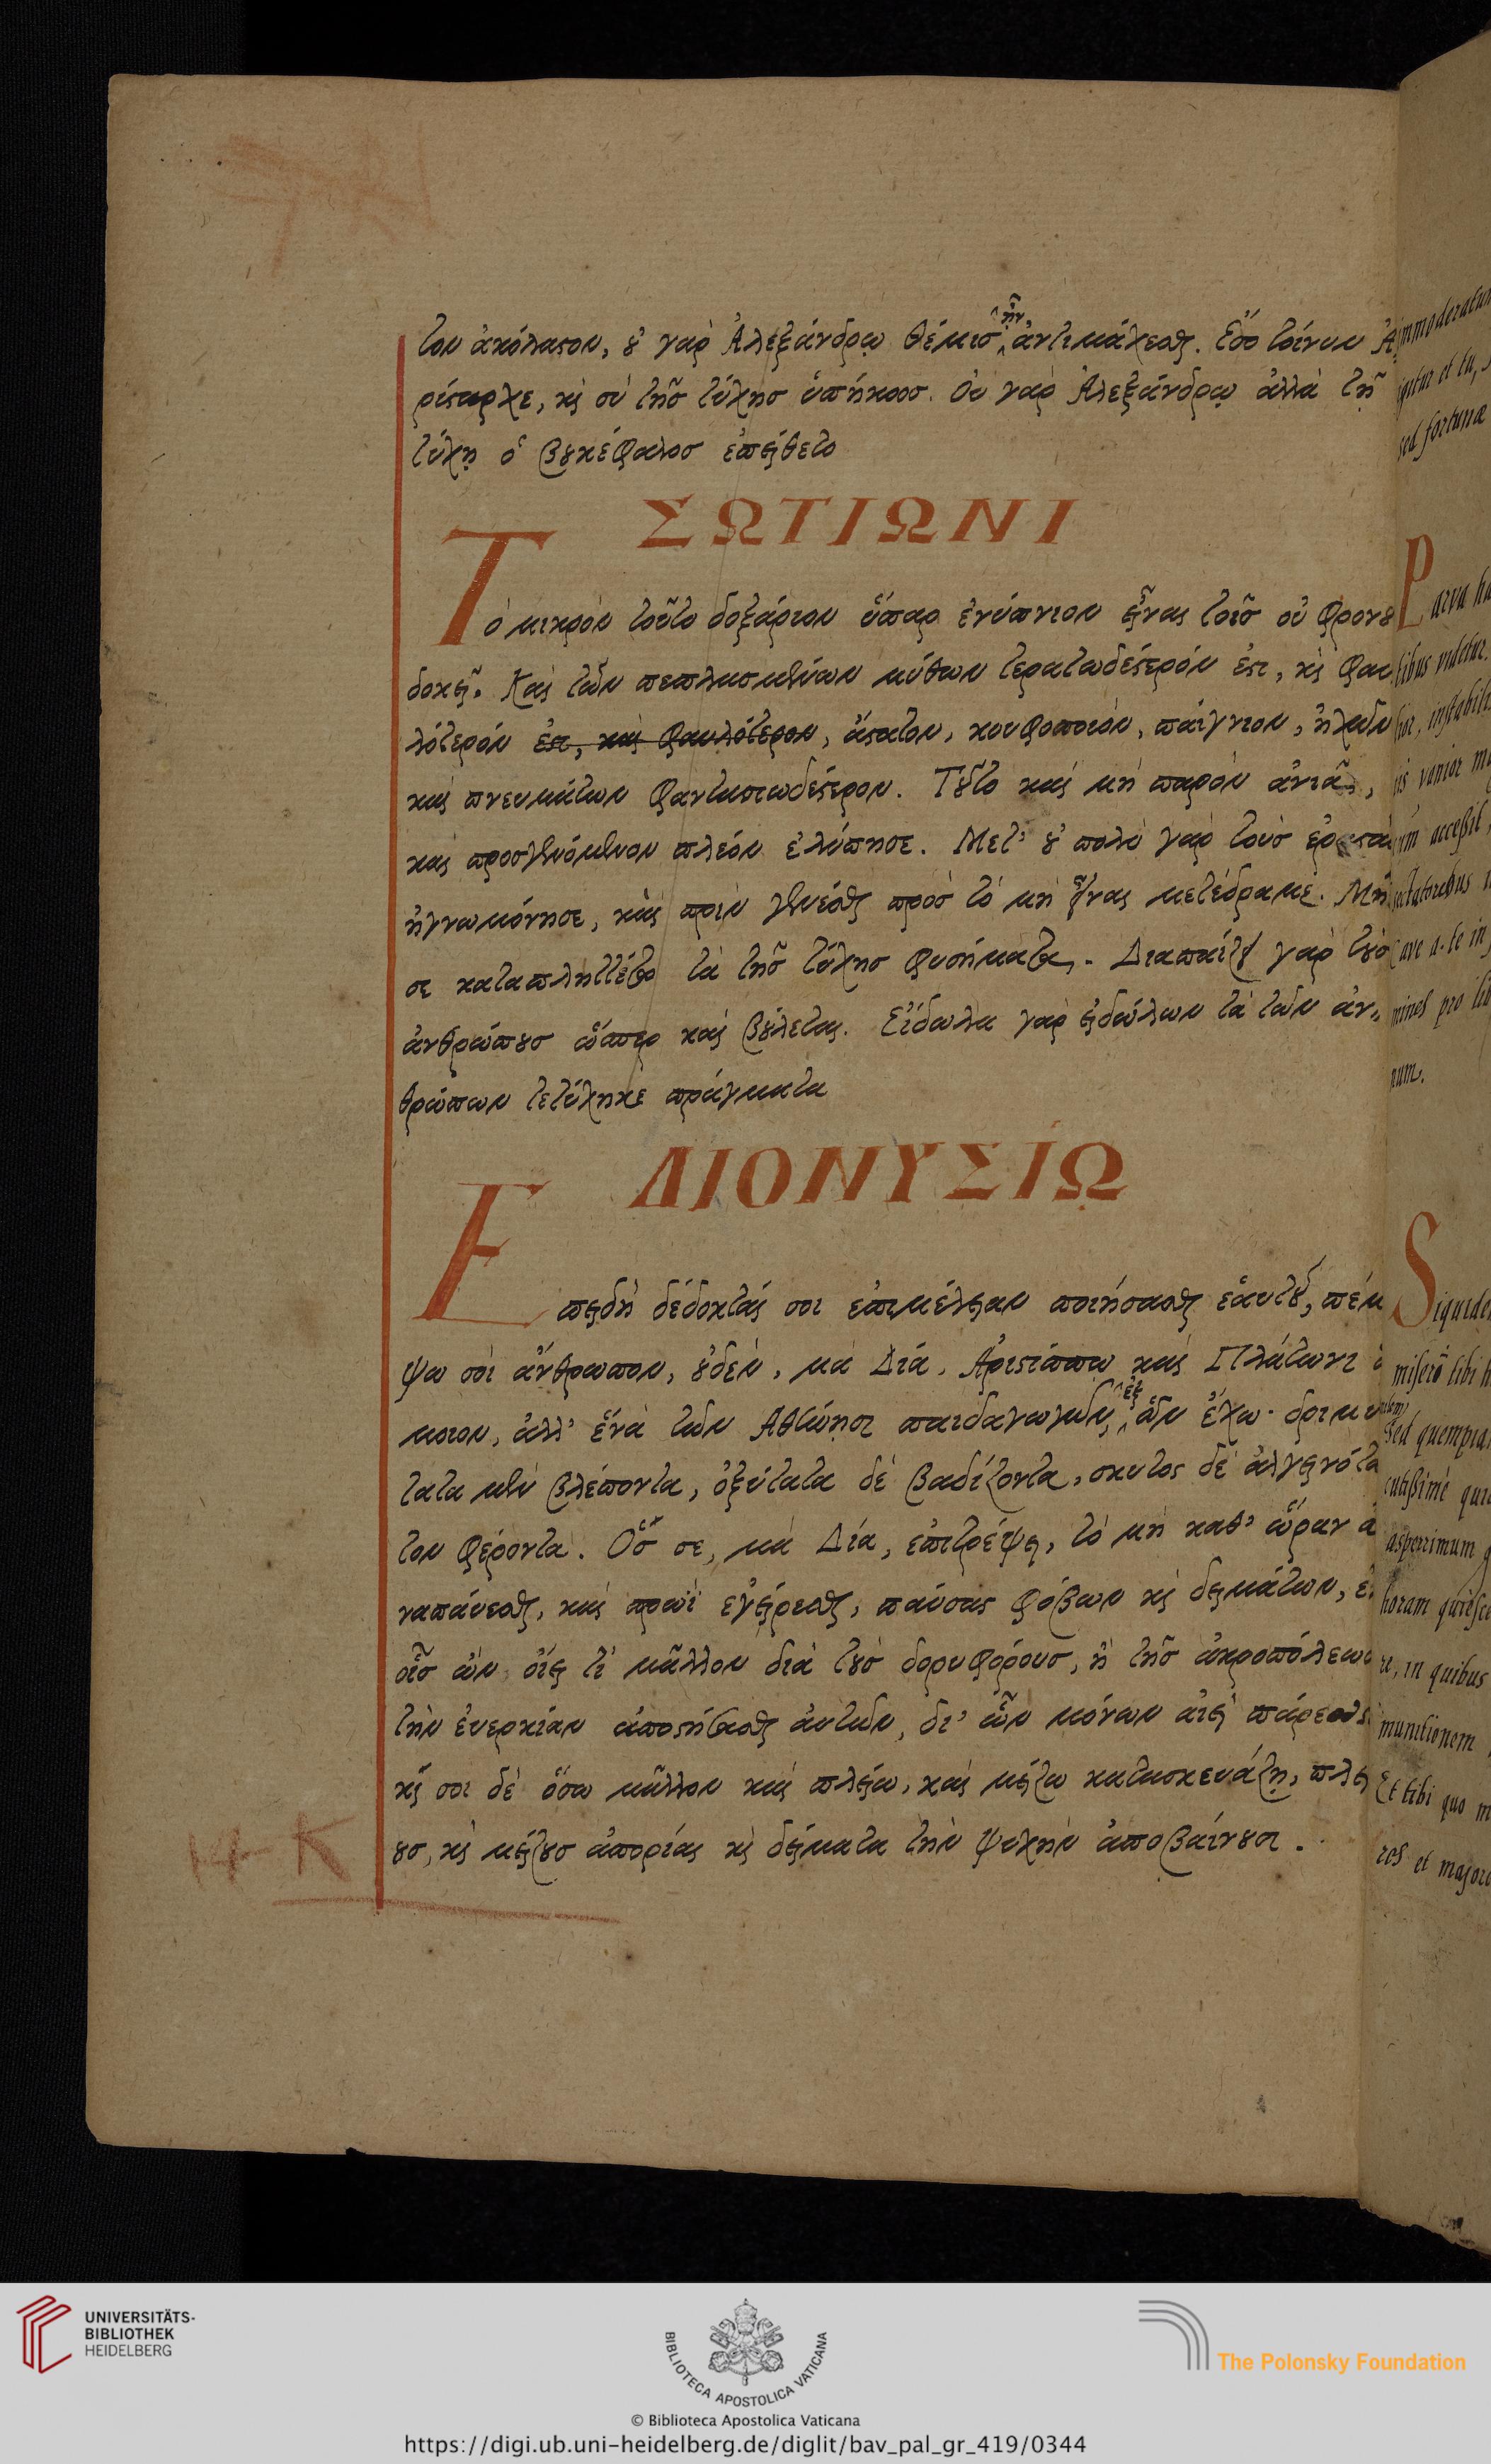 τον ἀκόλαστον, οὐ γὰρ Ἀλεξάνδρῳ θέμις ἦν ἀντιμάχεσθαι. Ἔσο τοίνυν Ἀ
ρίσταρχε, καὶ σὺ τῆς τύχης ὑπήκοος. Οὐ γὰρ Ἀλεξάνδρῳ ἀλλὰ τῇ
τύχῃ ὁ βουκέφαλος ἐπείθετο
ΣΩΤΙΩΝΙ
Τὸ μικρὸν τοῦτο δοξάριον ὕπαρ ἐνύπνιον εἶναι τοῖς οὐ φρονοῦ
δοκεῖ. Καὶ τῶν πεπλασμένων μύθων τερατωδέστερόν ἐστι, καὶ φαυ
λότερόν ἐστι, καὶ φαυλότερον, ἄστατον, κουφοποιὸν, παίγνιον, ἠχῶν
καὶ πνευμάτων φαντασιωδέστερον. Τοῦτο καὶ μὴ παρὸν ἀνιᾷ,
καὶ προσγενόμενον πλεόν ἐλύπησε. Μετ' οὐ πολὺ γὰρ τοὺς ἐραστὰς
ἠγνωμόνησε, καὶ πρὶν γενέσθαι πρὸς τὸ μὴ εἶναι μετέδραμε. Μή
σε καταπληττέτω τὰ τῆς τύχης φυσήματα. Διαπαίζει γὰρ τοὺς
ἀνθρώπους ὥσπερ καὶ βούλεται. Εἴδωλα γὰρ εἰδώλων τὰ τῶν ἀν„
θρώπων τετύχηκε πράγματα
ΔΙΟΝΥΣΊΩ
Ἐπειδὴ δέδοκταί σοι ἐπιμέλειαν ποιήσασθαι ἑαυτοῦ, πέμ
ψω σοὶ ἄνθρωπον, οὐδὲν, μὰ Δία, Ἀριστίππῳ καὶ Πλάτωνι ὅ
μοιον, ἀλλ' ἕνα τῶν Ἀθήνησι παιδαγωγῶν, ἐξ ὧν ἔχω. δριμύ
τατα μὲν βλέποντα, ὀξύτατα δὲ βαδίζοντα, σκυτος δὲ ἀλγεινότα
τον φέροντα. Ὅς σε, μὰ Δία, ἐπιτρέψει, τὸ μὴ καθ' ὥραν ἀ
ναπαύεσθαι, καὶ πρωῒ ἐγείρεσθαι, παύσας φόβων καὶ δειμάτων, ἐ
οἷς ὢν οἴει τι μᾶλλον διὰ τοὺς δορυφόρους, ἢ τῆς ἀκροπόλεως
τὴν ἐυερκίαν ἀποστήσασθαι ἀυτῶν, δι' ὧν μόνων ἀιεὶ πάρεσθι
καί σοι δὲ ὅσω μᾶλλον καὶ πλείω, καὶ μείζω κατασκευάζῃ, πλεί
ους, καὶ μείζους ἀπορίας καὶ δείματα τὴν ψυχὴν ἀποβαίνουσι.
K
immoderatum
igitur et tu,
sed fortunæ
Parva ha
tibus videtur.
lior, instabilis
is vanior
um accessit,
sectatoribus
Cave a te in
mines pro lib
num.
Siquidem
misero tibi h
Sed quempiam
cutissimè qui
asperrimum q
horam quiesce
re, in quibus
munitionem
Et tibi quo m
ros et majore
UNIVERSITÄTS-
BIBLIOTHEK
HEIDELBERG
BIBLIOTECA APOSTOLICA VATICANA
The Polonsky Foundation
© Biblioteca Apostolica Vaticana
https://digi.ub.uni-heidelberg.de/diglit/bav_pal_gr_419/0344